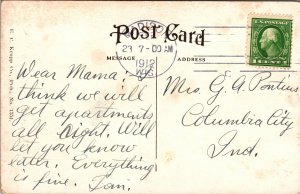 Post Card
MESSAGE
23 7-00AM
1912
WIS.
1 CENT 1
Wear Mama!
think we will
get apartments
all right. Will
let you know
later. Everything
is fine. Tom.
Mrs. G. A. Pontius
Columbia City
Ind.